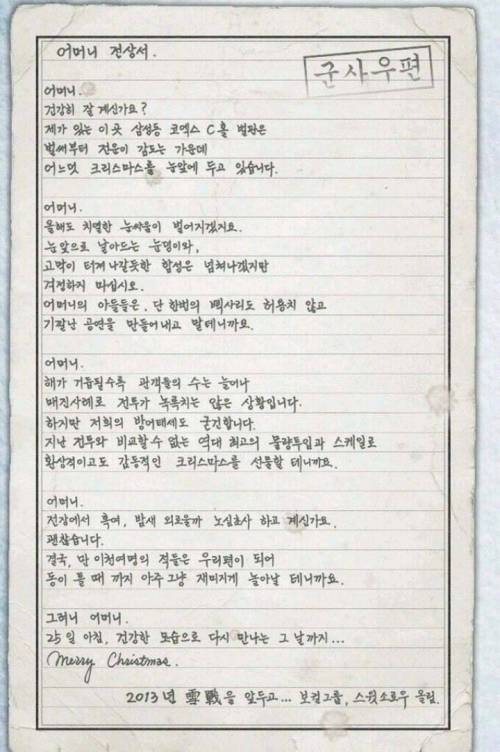 어머니 전상서.
군사우편
어머니.
건강히 잘 계신가요?
제가 있는 이곳 삼성동 코엑스 C홀 벌판은
벌써부터 전운이 감도는 가운데
어느덧 크리스마스를 눈앞에 두고 있습니다.
어머니.
올해도 치열한 눈싸움이 벌어지겠지요.
눈앞으로 날아드는 눈덩이와,
고막이 터져나갈듯한 함성은 넘쳐나겠지만
걱정하지 마십시오.
어머니의 아들들은, 단 한번의 삑사리도 허용치 않고
기깔난 공연을 만들어내고 말테니까요.
어머니.
해가 거듭될수록 관객들의 수는 늘어나
매진사례로 전투가 녹록치는 않은 상황입니다.
하지만 저희의 방어태세도 굳건합니다.
지난 전투와 비교할 수 없는 역대 최고의 물량투입과 스케일로
환상적이고도 감동적인 크리스마스를 선물할 테니까요.
어머니.
전장에서 혹여, 밤새 외로울까 노심초사 하고 계신가요.
괜찮습니다.
결국, 만 이천여명의 적들은 우리편이 되어
동이 틀 때 까지 아주 그냥 재미지게 놀아날 테니까요.
그러니 어머니.
25일 아침, 건강한 모습으로 다시 만나는 그 날까지...
Merry Christmas.
2013년 雪戰을 앞두고... 보컬그룹, 스윗소로우 올림.